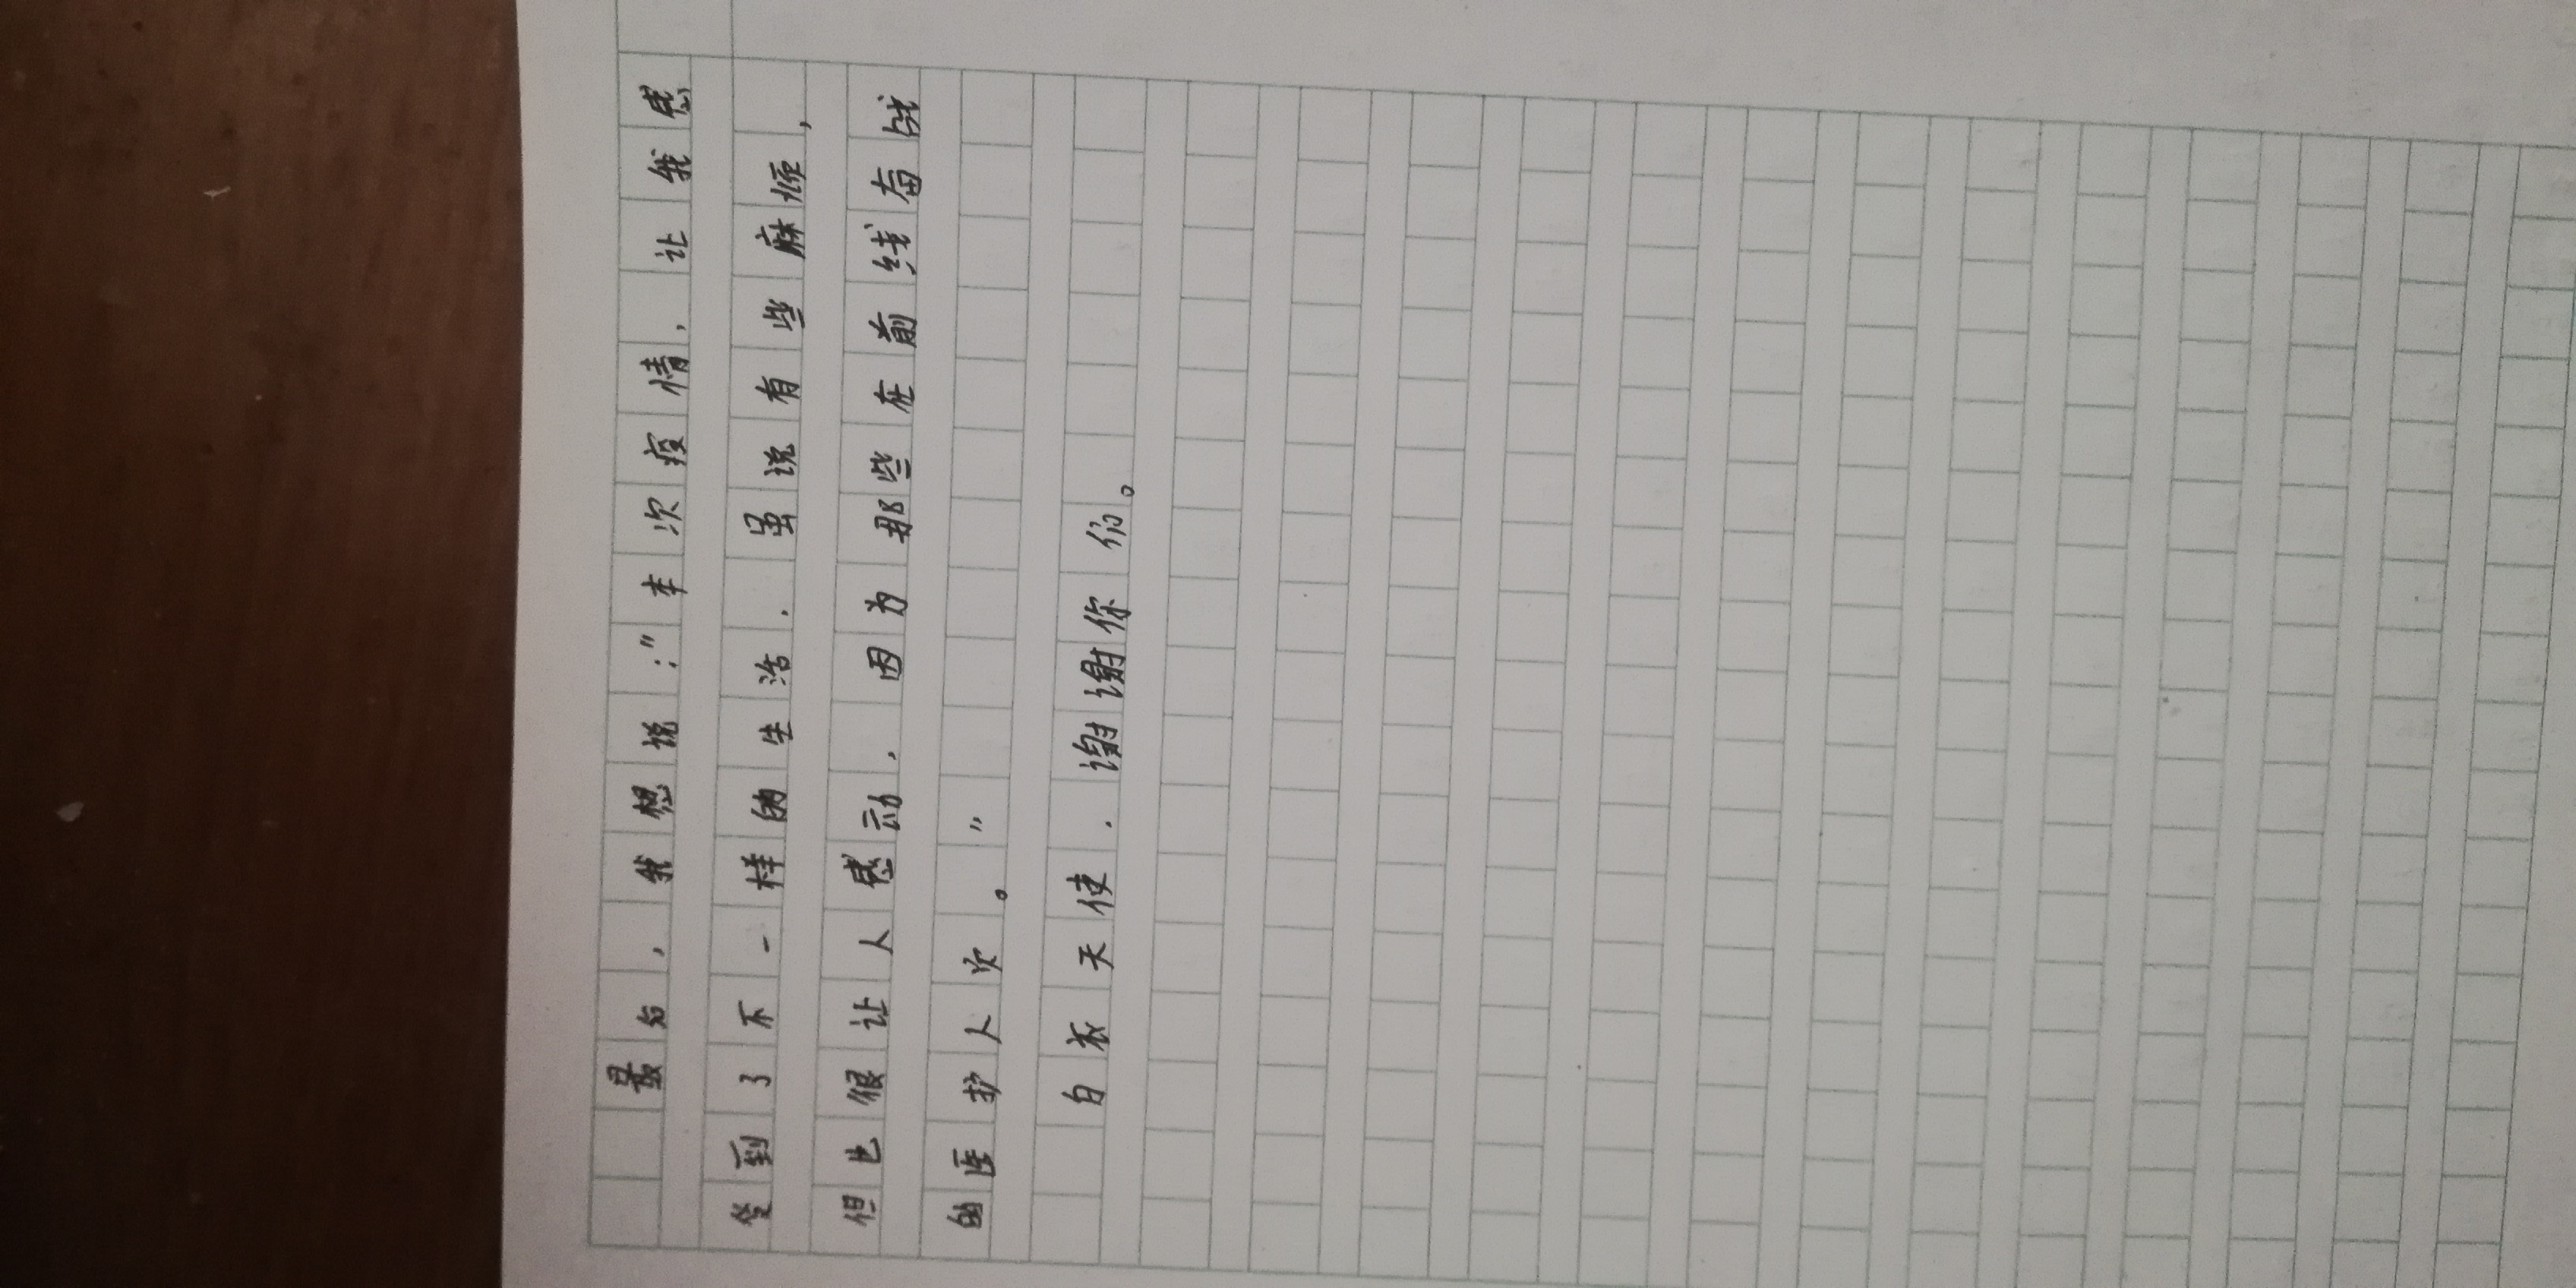 最后，我想说：“本次疫情，让我感
受到了不一样的生活，虽说有些麻烦，
但也很让人感动，因为那些在前线奋战
的医护人次。”
白衣天使，谢谢你们。